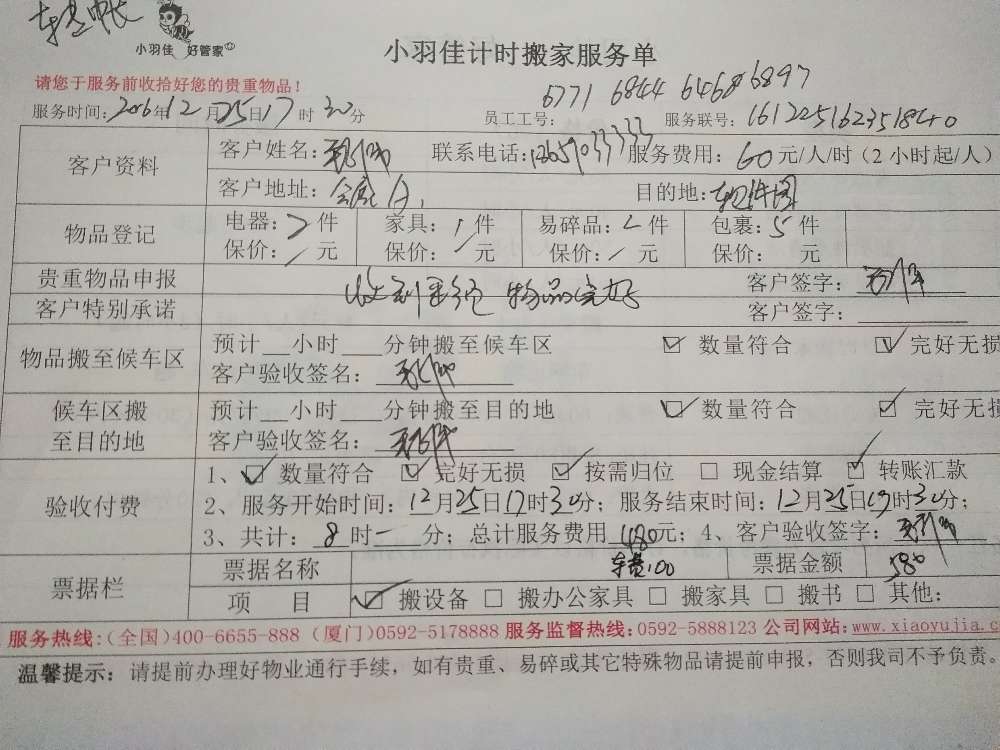 小羽佳 好管家
小羽佳计时搬家服务单
请您于服务前收拾好您的贵重物品！
6771 6844 6468 6897
服务时间：2016年12月25日17时30分 员工工号： 服务联号：16122516235184-0
客户资料 客户姓名： 联系电话： 服务费用：60元/人/时（2小时起/人）
客户地址： 目的地：
物品登记 电器：2件 家具：1件 易碎品：2件 包裹：5件
保价：/元 保价：/元 保价：/元 保价： 元
贵重物品申报 物品完好 客户签字：
客户特别承诺 客户签字：
物品搬至候车区 预计__小时__分钟搬至候车区 ☑ 数量符合 ☑ 完好无损
客户验收签名：
候车区搬至目的地 预计__小时__分钟搬至目的地 ☑ 数量符合 ☑ 完好无损
客户验收签名：
验收付费 1、☑ 数量符合 ☑ 完好无损 ☑ 按需归位 □ 现金结算 ☑ 转账汇款
2、服务开始时间：12月25日17时30分；服务结束时间：12月25日19时30分；
3、共计：8时一分；总计服务费用480元；4、客户验收签字：
票据栏 票据名称 车费：100 票据金额 580
项 目 ☑ 搬设备 □ 搬办公家具 □ 搬家具 □ 搬书 □ 其他：
服务热线：（全国）400-6655-888（厦门）0592-5178888 服务监督热线：0592-5888123 公司网站：www.xiaoyujia.c
温馨提示：请提前办理好物业通行手续，如有贵重、易碎或其它特殊物品请提前申报，否则我司不予负责。